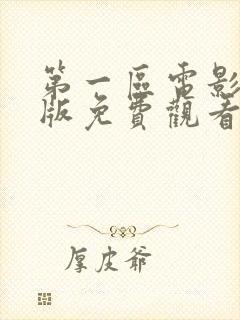 第一區電影
版免費觀看
厚皮爺